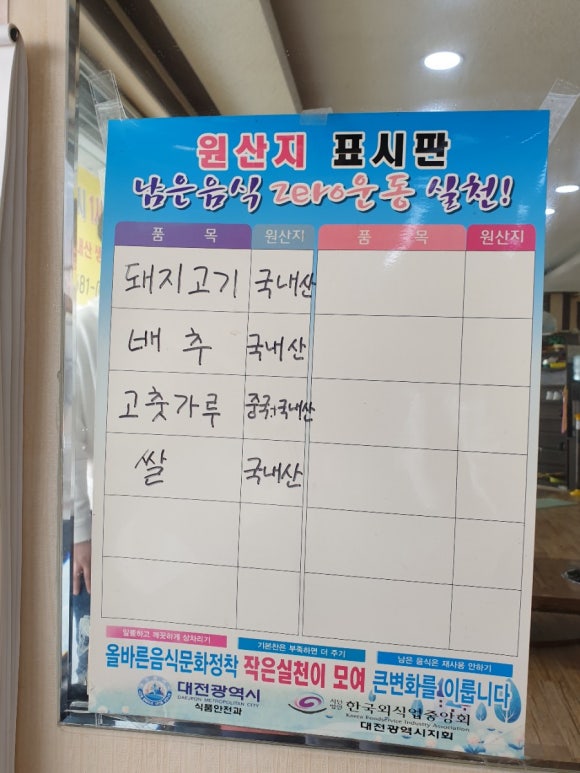 원산지 표시판
남은음식 zero운동 실천!
품 목 원산지 품 목 원산지
돼지고기 국내산
배 추 국내산
고춧가루 중국+국내산
쌀 국내산
알뜰하고 깨끗하게 상차리기 기본찬은 부족하면 더 주기 남은 음식은 재사용 안하기
올바른음식문화정착 작은실천이 모여 큰변화를 이룹니다
대전광역시
DAEJEON METROPOLITEN CITY
식품안전과
사단법인 한국외식업중앙회
Korea Foodservice Industry Association
대전광역시지회
81-